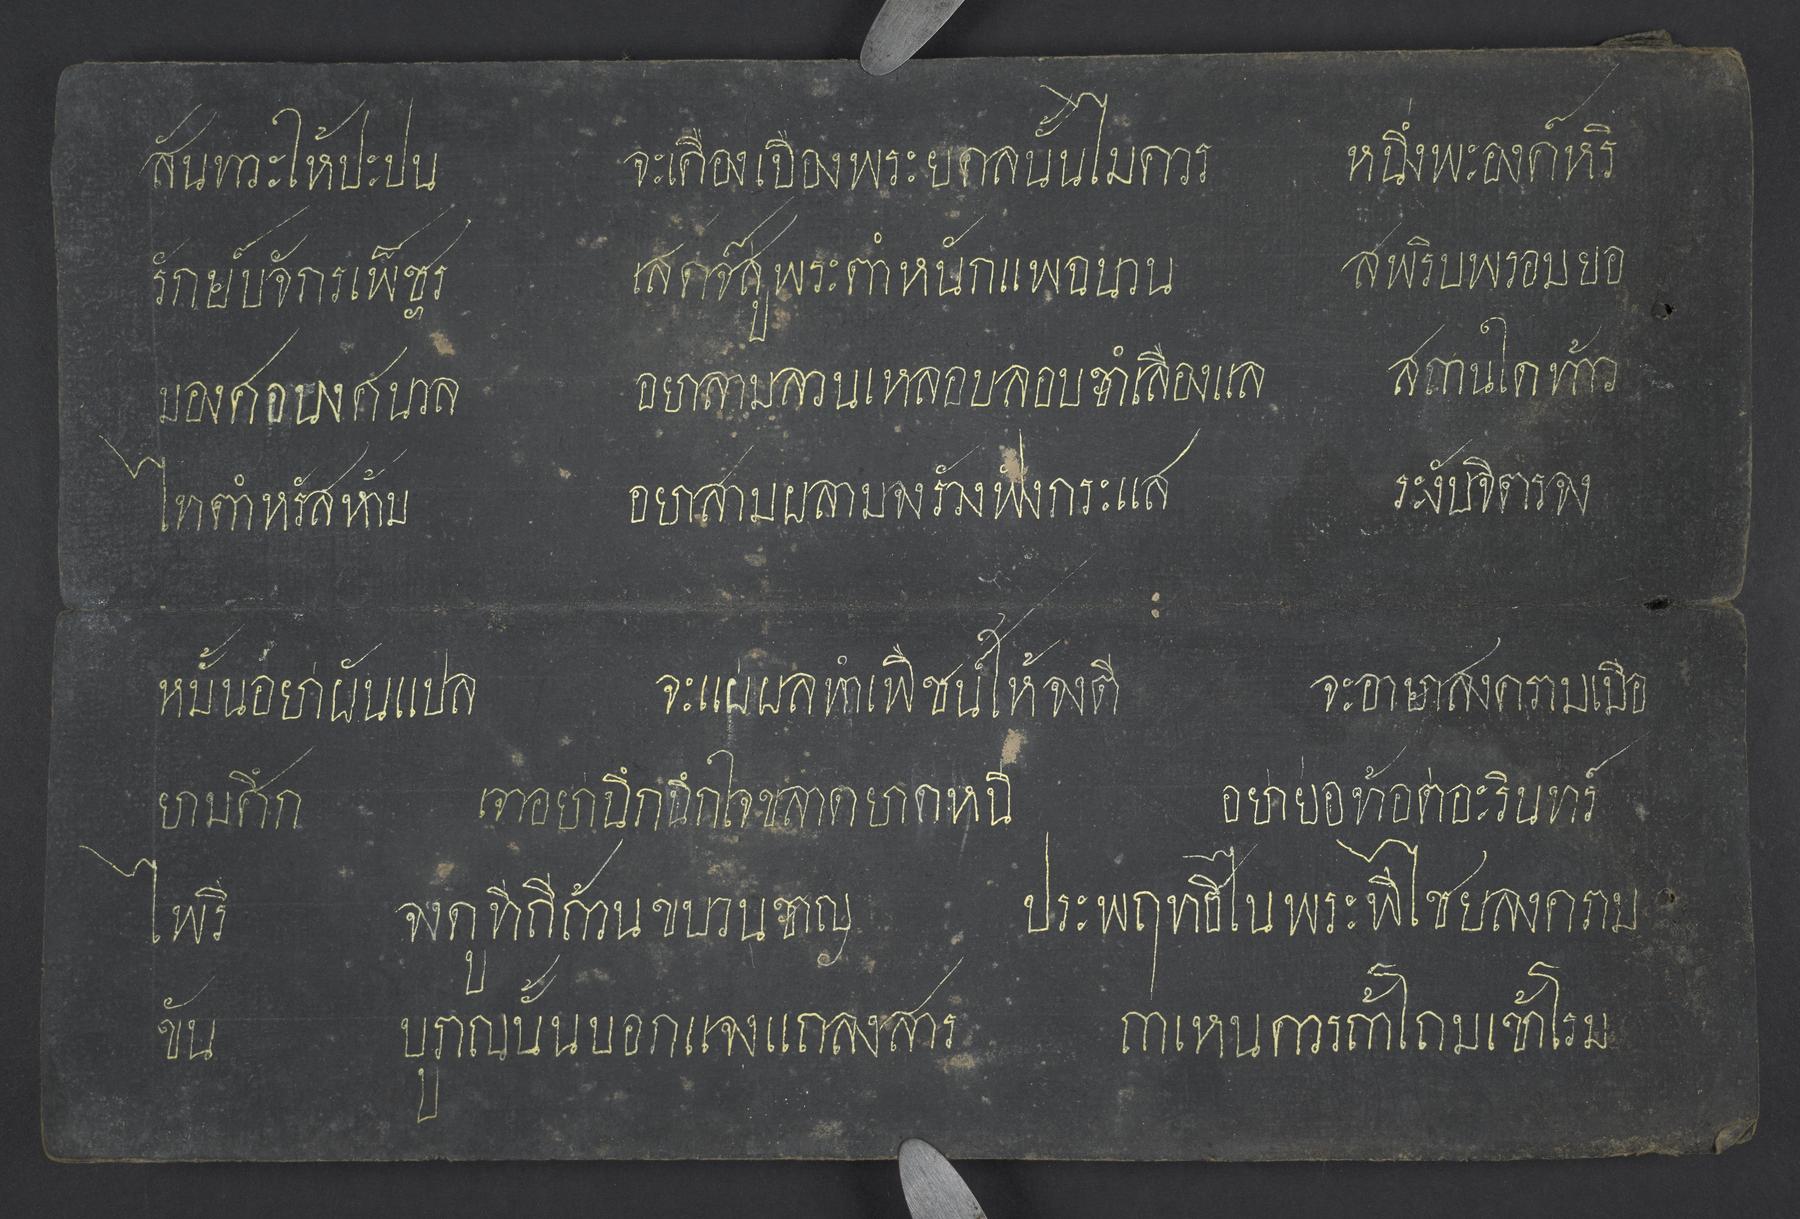 สันทวะให้ปะปน จะเคืองเบืองพระยุคลนั้นไม่ควร หนึ่งพะองค์หริ
รักษ์บจักรเพ็ชูร เสดจ์สู่พระตำหนักแพฉนวน สพริบพรอบยอ
มองศอนงคนวล อยาลามลวนเหลอบลอบชำเลืองแล สถานใดท้าว
ไทตำหรัสห้าม อยาสามผลามจงร้วงฟังกระแส ระงับจิตรจง
หมั้นอ่ย่าผันแปล จะแผ่ผลทำเพิชน์ให้จงดี จะอาษาสงครามเมือ
ยามศึก เจาอย่านึกนึกใจขลาดยาดหนี อย่าย่อท้อต่อะรินทร์
ไพรี จงดูทีถี่ถ้วนขบวนชาญ ประพฤทธิไนพระพีไชยสงคราม
ขัน บูราณบั้นบอกแจงแถลงสาร ถาเหนควรถ้าโถมเข้าโรม